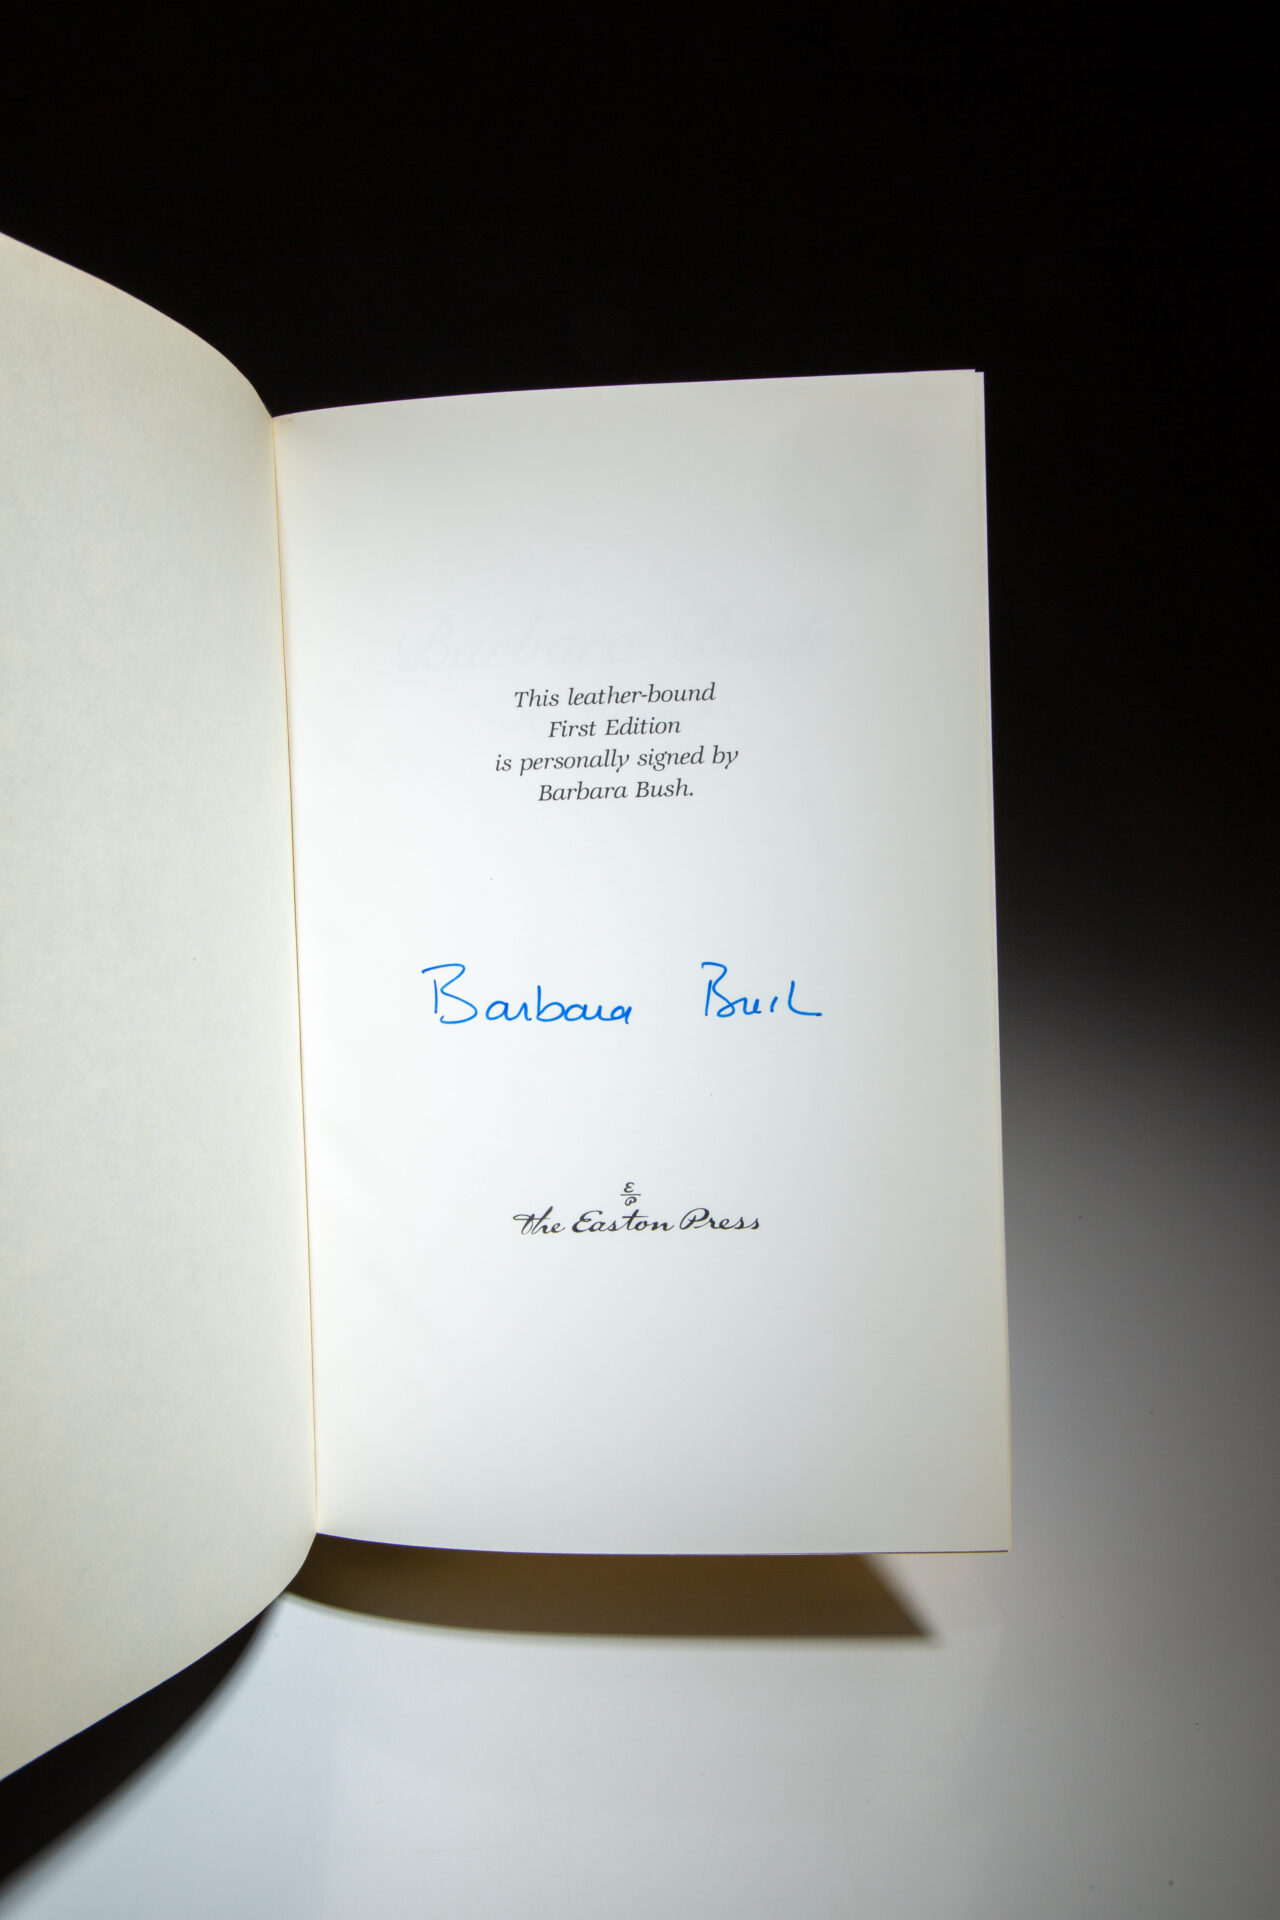 Barbara Bush
This leather-bound
First Edition
is personally signed by
Barbara Bush.
Barbara Bush
E
P
The Easton Press